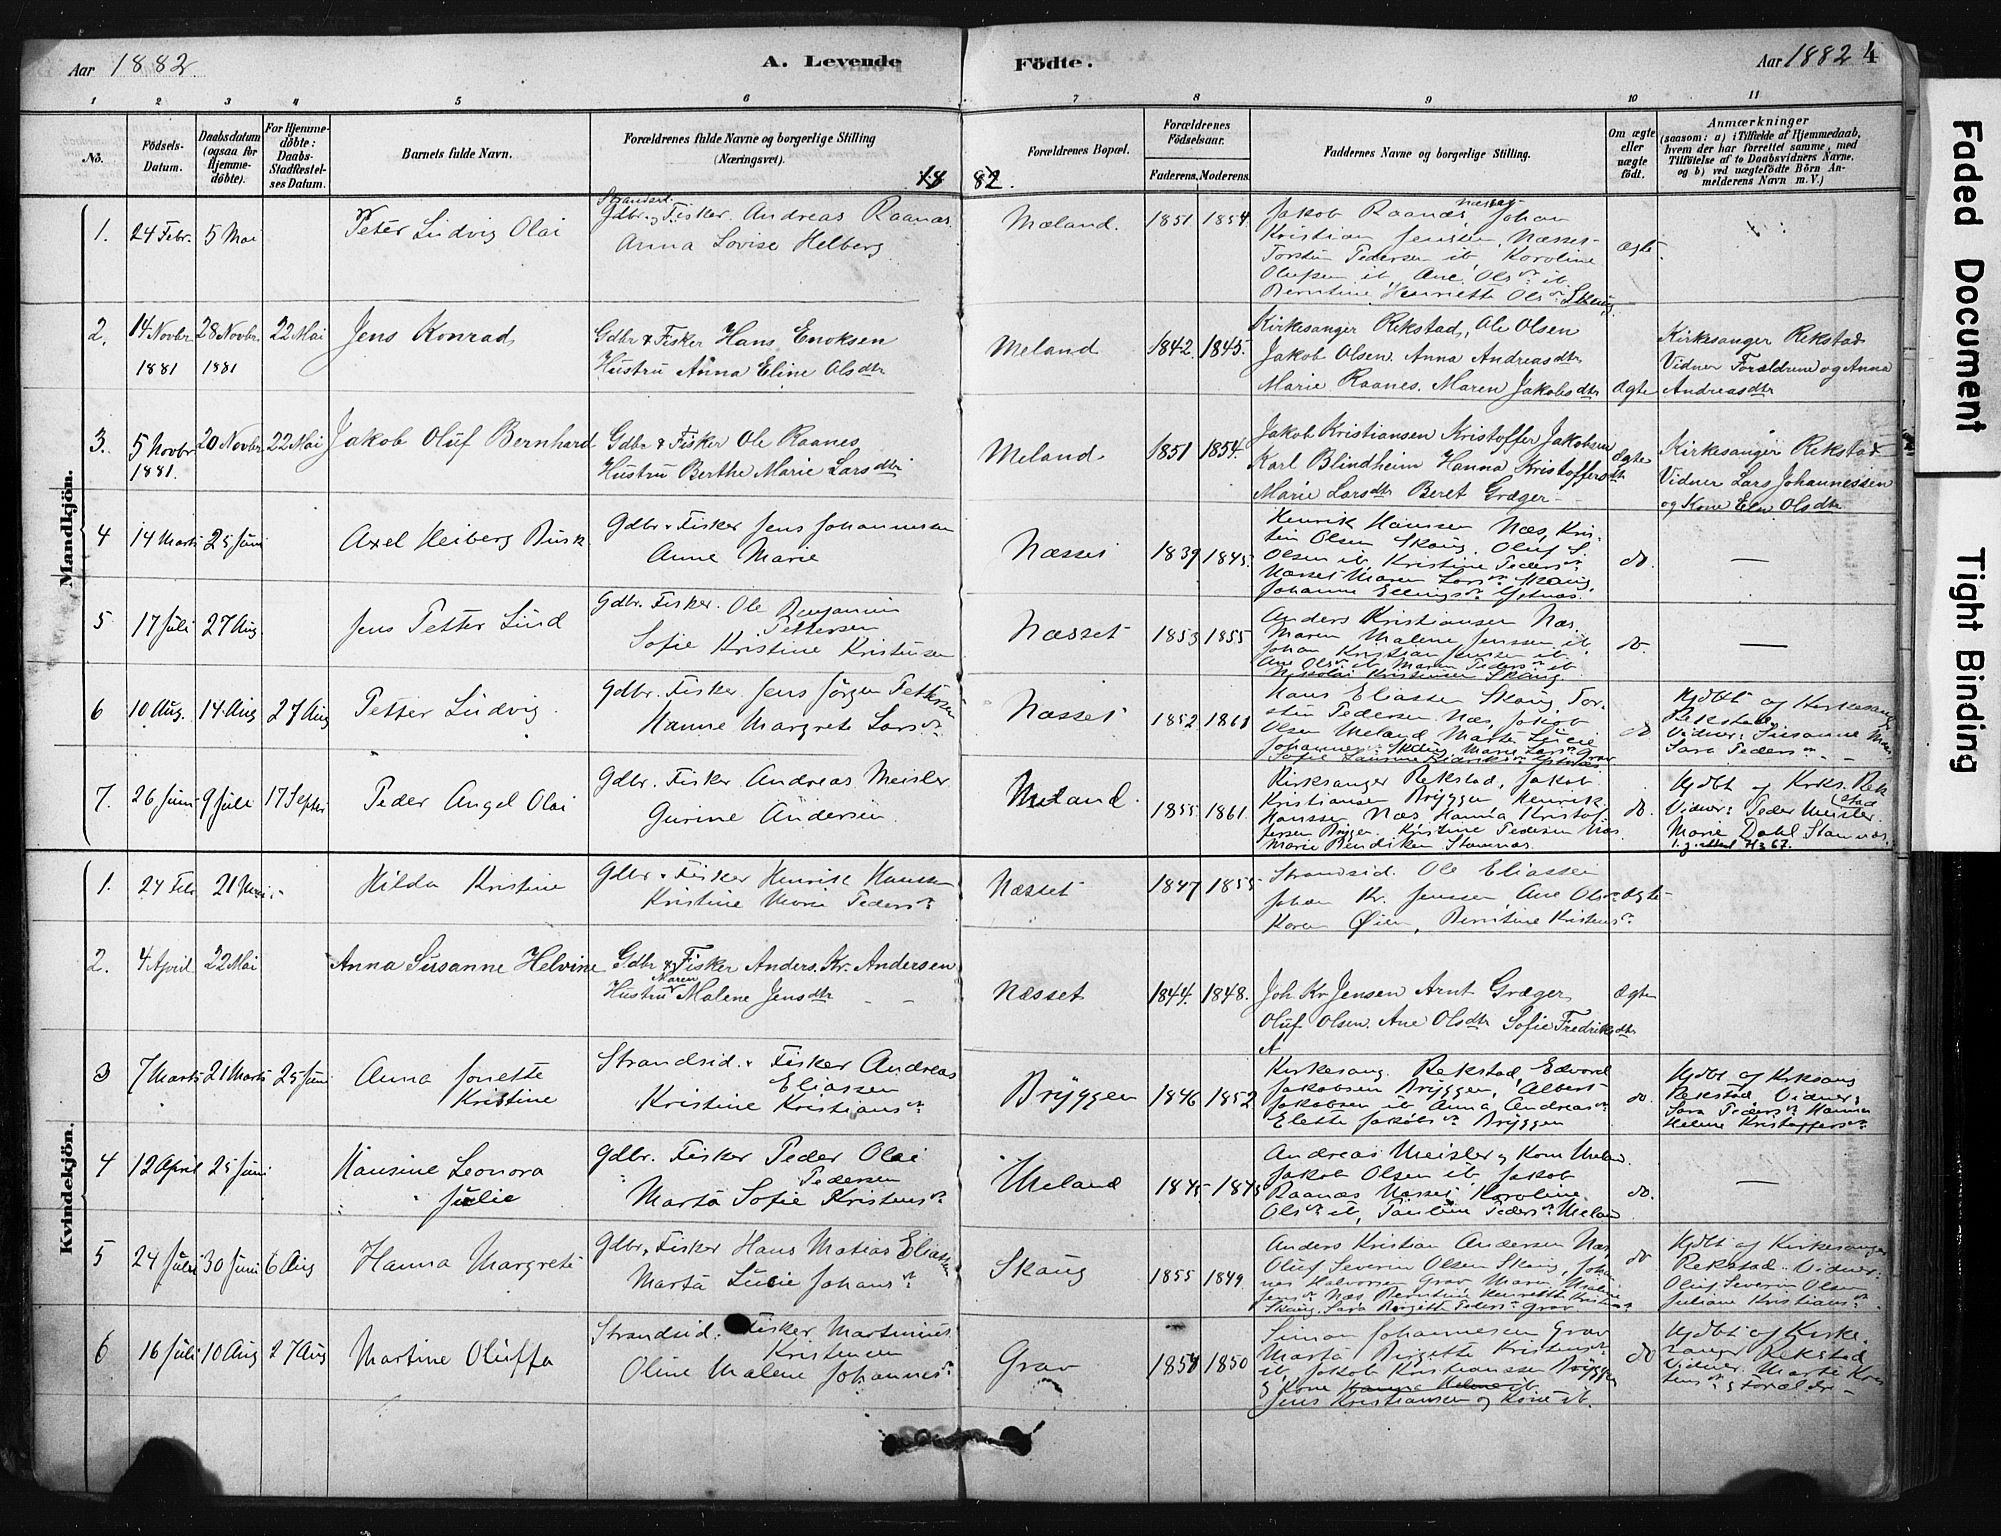 Aar 1882.
A. Levende
Födte.
Aar 1882 4
1 2 3 4 5 6 7 8 9 10 11
No.
Födsels-Datum.
Daabsdatum (ogsaa for Hjemme-döbte).
For Hjemme-döbte: Daabs-Stadfæstel-ses Datum.
Barnets fulde Navn.
Forældrenes fulde Navne og borgerlige Stilling (Næringsvei).
Forældrenes Bopæl.
Forældrenes Födselsaar.
Faderens. Moderens.
Faddernes Navne og borgerlige Stilling.
Om ægte eller uægte födt.
Anmærkninger
(saasom: a) i Tilfælde af Hjemmedaab, hvem der har forrettet samme, med Tilföielse af to Daabsvidners Navne. og b) ved uægtefödte Börn An-melderens Navn m. V.)
18 82.
Mandkjön.
1. 24 Febr. 5 Mai Peter Ludvig Olai
Strandsid.
Gdbr. & Fisker. Andreas Raanæs
Anna Lovise Helberg
Mæland. 1851 1854
Jakob Raanæs Næsset Johan
Kristian Jensen, Næsset
Torstin Pedersen ib, Karoline
Olufsen ib, Ane Olsdr ib
Berntine Henriette Olsdr Skaug
ægte
2. 14 Novbr 1881 28 Novbr. 1881 22 Mai Jens Konrad
Gdbr & Fisker Hans Enoksen
Hustru Anna Eline Olsdtr
Meland 1842. 1845.
Kirkesanger Rekstad, Ole Olsen
Jakob Olsen. Anna Andreasdtr
Marie Raanes. Maren Jakobsdtr
Ægte
Kirkesanger Rekstad
Vidner Forældrene og Anna
Andreasdtr
3. 5 Novbr 1881. 20 Novbr 22 Mai Jakob Oluf Bernhard
Gdbr & Fisker Ole Raanes
Hustru Berthe Marie Larsdtr
Meland 1851 1854.
Jakob Kristiansen Kristoffer Jakobsen
Karl Blindheim Hanna Kristoffersdtr
Marie Larsdtr Beret Græger
Ægte
Kirkesanger Rekstad
Vidner Lars Johannessen
og Kone Elen Olsdtr
4 14 Marts 25 Juni Axel Heiberg Busk
Gdbr. & Fisker Jens Johannesen
Anne Marie
Næsset 1839 1845.
Henrik Hanssen Næs, Kris-
tin Olsen Skaug. Oluf S.
Olsen ib, Kristine Pedersdr
Næsset Maren Larsdr Skaug
Johanne Ellingsdr
do. —
5 17 Juli 27 Aug. Jens Petter Lind
Gdbr. Fisker. Ole Benjamin
Pettersen
Sofie Kristine Kristensen
Næsset 1853 1855
Anders Kristiansen Næs.
Maren Malene Jenssen ib.
Johan Kristian Jensen ib
Ane Olsdr ib Maren Pedersdr ib
Nikolai Kristensen Skaug
do. —
6 10 Aug. 14 Aug 27 Aug Petter Ludvig
Gdbr. Fisker. Jens Jörgen Pettersen
Hanne Margrete Larsdr
Næsset 1852 1861
Hans Eliassen Skaug, Tor-
stin Pedersen Næs, Jakob
Olsen Meland Marta Lucie
Johannesdr Skaug, Marie Larsdr Grav
do
Hjdbt af Kirkesang
Rekstad.
Vidner: Susanne
Sara Pedersdr
7. 26 Juni 9 Juli 17 Septbr Peder Angel Olai
Gdbr. Fisker Andreas Meisler
Gurine Andersen
Meland. 1855 1861.
Kirksanger Rekstad, Jakob
Kristiansen Bryggen, Henrik
Hanssen Næs Hanna Kristof-
fersen Bryggen. Kristine Pedersen Næs
Marie Bendiksen Stamnæs.
do.
Hjdbt af Kirks. Rek
stad
Vidner: Peder Meisler
Marie Dahl Stamnæs
Kvindekjön.
1. 24 Feb 21 Hilda Kristine
Gdbr & Fisker Henrik Hanssen
Kristine Marie Pedersdr
Næsset 1847 1855
Strandsid. Ole Eliassen
Johan Kr. Jenssen, Ane Olsdr
Karen Øien, Berntine Kristensdr
ægte
2. 4 April 22 Mai Anna Susanne Helvine
Gdbr & Fisker Anders. Kr. Andersen
Maren
Hustru Malene Jensdtr
Næsset 1844. 1848.
Joh Kr Jensen Arnt Græger
Oluf Olsen. Ane Olsdtr Sofie Fredriksdtr
Ægte
3 7 Marts 21 Marts 25 Juni Anna Jonette
Kristine
Strandsid. & Fisker Andreas
Eliassen
Kristine Kristiansdr
Bryggen 1846 1852
Kirkesang. Rekstad, Edvard
Jakobsen Bryggen, Albert
Jakobsen ib Anna Andreasdr
Elette Jakobsdr Bryggen
do.
Hjdbt af Kirksang
Rekstad, Vidner:
Sara Pedersdr Hanna
Helene Kristoffersdr
4 12 April 25 Juni Hansine Leonora
Julie
Gdbr. Fisker Peder Olai
Pedersen
Marta Sofie Kristensdr
Meland 1845 1845
Andreas Meisler & Kone Melan.
Jakob Olsen ib, Jakob
Raanæs Næsset Karoline
Olsdr ib, Pauline Pedersdr Melan
do. —
5 24 Juli 30 Juni 6 Aug Hanna Margrete
Gdbr. Fisker Hans Matias Eliassen
Marta Lucie Johansdr
Skaug 1855 1849.
Anders Kristian Andersen Næs.
Oluf Severin Olsen Skaug, Joha-
nes Halvorsen Grav Maren Malene
Jensdr Næs Berntine Henriette Kristensdr
Skaug. Sara Birgitte Pedersdr Grav
do
Hjdbt af Kirkesanger
Rekstad. Vidner:
Oluf Severin Olsen
Juliane Kristiansdr
6 16 Juli 10 Aug 27 Aug Martine Oluffa
Strandsid. Fisker Martinus
Kristensen
Oline Malene Johannesdr
Grav 1854 1850
Simon Johannesen Grav
Marta Birgitte Kristensdr
ib, Jakob Kristianssen Bryggen
& Kone Hanna Helene ib
Jens Kristiansen og Kone ib.
do
Hjdbt af Kirke-
sanger Rekstad
Vidner. Marte Kris
tensdr & Forældr.
Faded Document
Tight Binding